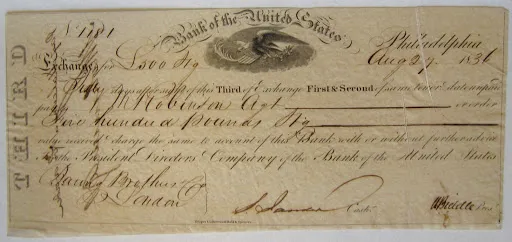 Bank of the United States
No 1781
Philadelphia
Exchange for £500 Stg
Aug 29, 1836
Sixty days after sight of this Third of Exchange First & Second of same tenor & date unpaid
pay to J. Robinson Agt or order
Five hundred pounds Stg
value received & charge the same to account of this Bank with or without further advice
To the President Directors & Company of the Bank of the United States
Baring Brothers & Co
London
Cashr
N Biddle Prest
THIRD